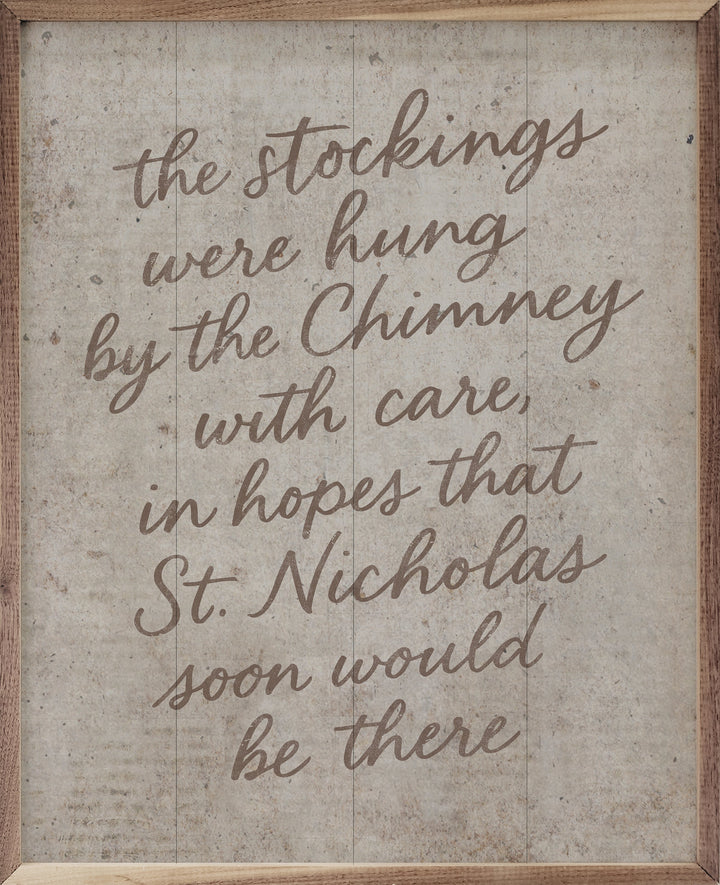 the stockings
were hung
by the Chimney
with care,
in hopes that
St. Nicholas
soon would
be there